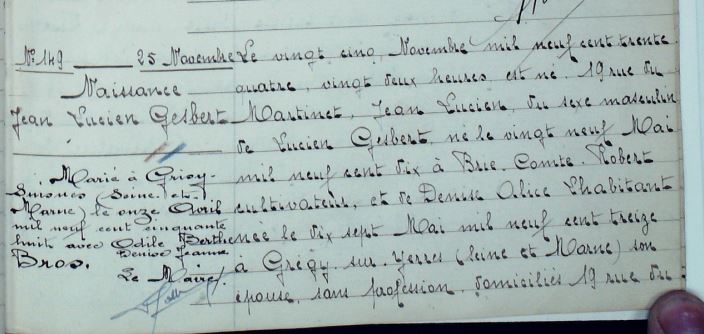 N° 149 25 Novembre
Naissance
Jean Lucien Gesbert
Marié à Grisy-
Suisnes (Seine-et-
Marne) le onze Avril
mil neuf cent cinquante
huit avec Odile Berthe
Denise Jeanne
Bros.
Le Maire,
Le vingt cinq Novembre mil neuf cent trente
quatre, vingt deux heures est né. 19 rue du
Martinet, Jean Lucien du sexe masculin
de Lucien Gesbert, né le vingt neuf Mai
mil neuf cent dix à Brie. Comte. Robert
cultivateur, et de Denise Alice Lhabitant
née le dix sept Mai mil neuf cent treize
à Grégy. sur. Yerres (Seine et Marne) son
épouse, sans profession, domiciliés 19 rue du